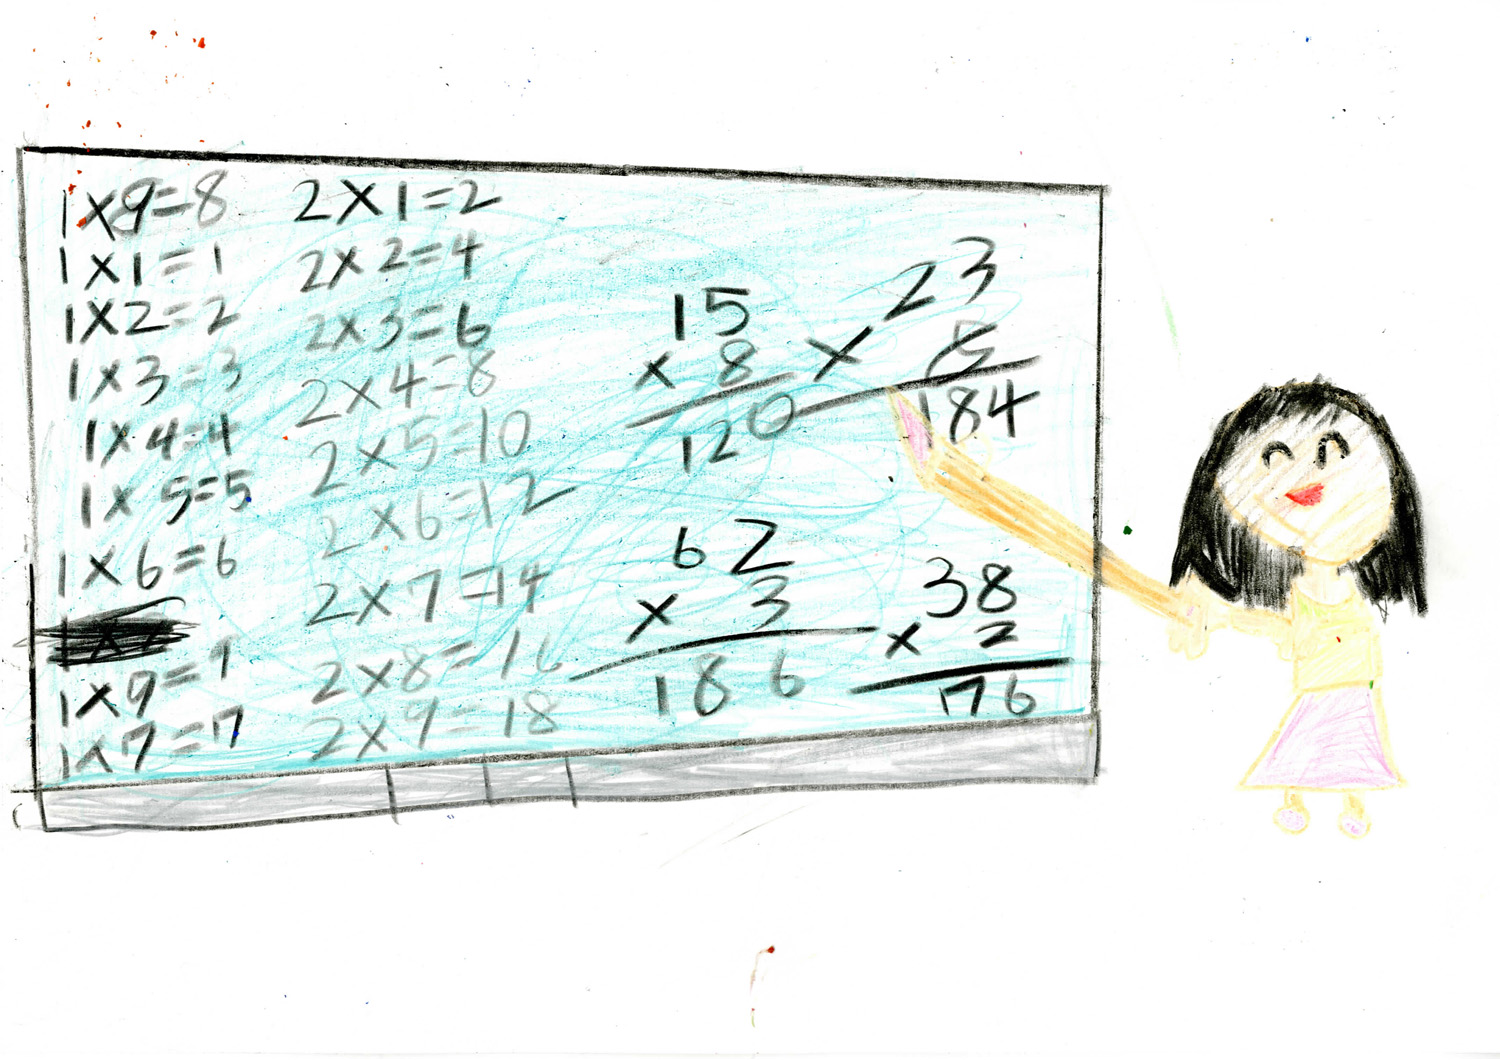 1×9=8
1×1=1
1×2=2
1×3=3
1×4=4
1×5=5
1×6=6
1×9=9
1×7=7
2×1=2
2×2=4
2×3=6
2×4=8
2×5=10
2×6=12
2×7=14
2×8=16
2×9=18
15
× 8
120
23
×
184
62
× 3
186
38
× 2
176